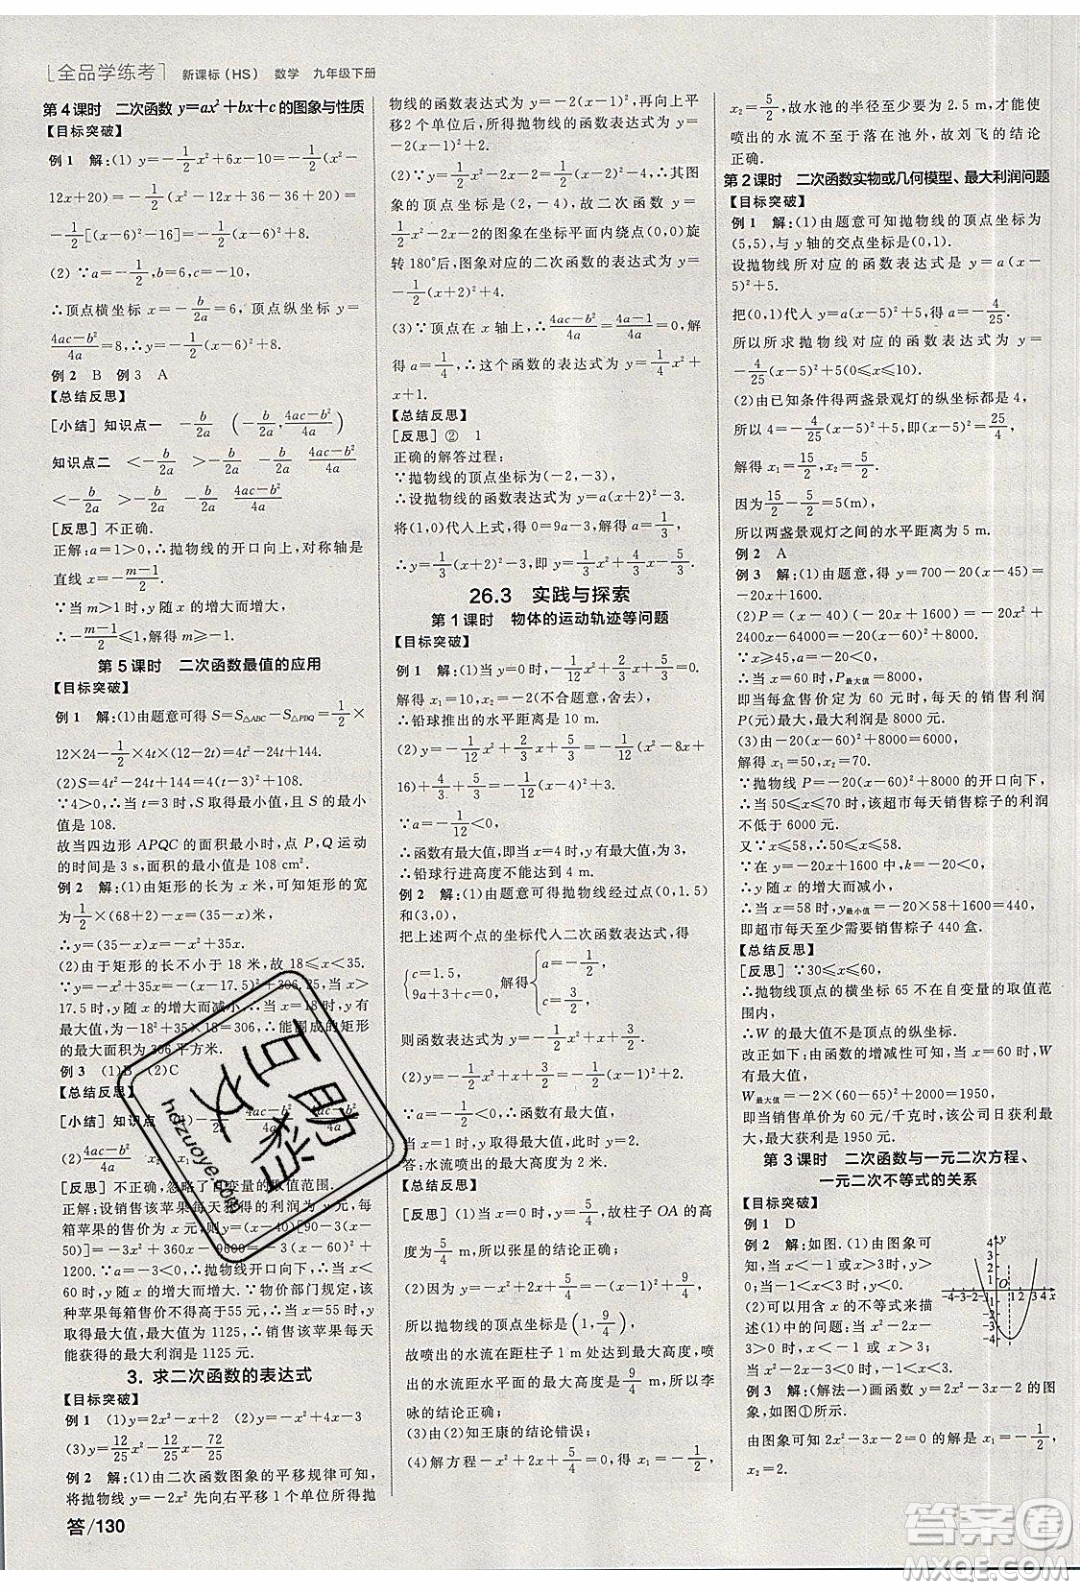 [全品学练考] 新课标(HS) 数学 九年级下册
第4课时 二次函数y=ax²+bx+c的图象与性质
【目标突破】
例1 解:(1)y=-1/2x²+6x-10=-1/2(x²-
12x+20)=-1/2(x²-12x+36-36+20)=
-1/2[(x-6)²-16]=-1/2(x-6)²+8.
(2)∵a=-1/2,b=6,c=-10,
∴顶点横坐标x=-b/2a=6,顶点纵坐标y=
(4ac-b²)/4a=8,∴y=-1/2(x-6)²+8.
例2 B 例3 A
【总结反思】
[小结]知识点一 -b/2a (-b/2a,(4ac-b²)/4a)
知识点二 <-b/2a >-b/2a >-b/2a
<-b/2a -b/2a (4ac-b²)/4a -b/2a (4ac-b²)/4a
[反思]不正确.
正解:a=1>0,∴抛物线的开口向上,对称轴是
直线x=-(m-1)/2.
∵当x>1时,y随x的增大而增大,
∴-(m-1)/2≤1,∴m≥-1.
第5课时 二次函数最值的应用
【目标突破】
例1 解:(1)由题意可得S=S△ABC-S△PBQ=1/2×
12×24-1/2×4t×(12-2t)=4t²-24t+144.
(2)S=4t²-24t+144=4(t-3)²+108.
∵4>0,∴当t=3时,S取得最小值,且最小
值是108.
故当四边形APQC的面积最小时,点P,Q运动
的时间是3 s,面积的最小值是108 cm².
例2 解:(1)由矩形的长为x米,可知矩形的宽
为1/2×(68+2)-x=(35-x)米,
∴y=x(35-x)=-x²+35x.
(2)由于矩形的长不小于18米,故18≤x<35.
y=-x²+35x=-(x-17.5)²+306.25,当x>
17.5时,y随x的增大而减小,故当x=18时,y
有最大值,为-18²+35×18=306,∴能围成的矩形
的最大面积为306平方米.
例3 (1)B (2)C
【总结反思】
[小结]知识点 (1)-b/2a (4ac-b²)/4a -b/2a
(2)(4ac-b²)/4a x₁ x₂ x₂ x₁
[反思]不正确,忽略了自变量的取值范围.
正解:设销售该苹果每天获得的利润为y元,每
箱苹果的售价为x元,则y=(x-40)[90-3(x
-50)]=-3x²+360x-9600=-3(x-60)²+
1200.∵a=-3<0,∴抛物线开口向下.∴当x<
60时,y随x的增大而增大.∵物价部门规定该
种苹果每箱售价不得高于55元,∴当x=55元
时,y取得最大值,为1125,∴销售该苹果每天获
得的最大利润是1125元.
3. 求二次函数的表达式
【目标突破】
例1 (1)y=2x²-x+2 (2)y=-x²-2x+3
(3)y=12/25x²-12/25x-72/25
例2 解:(1)由二次函数图象的平移规律可知,
将抛物线y=-2x²先向右平移1个单位所得抛
答/130
物线的函数表达式为y=-2(x-1)²,再向上平
移2个单位后,所得抛物线的函数表达式为y=
-2(x-1)²+2.
(2)∵y=1/2x²-2x-2=1/2(x-2)²-4,∴原图
象的顶点坐标为(2,-4),故二次函数y=
1/2x²-2x-2的图象在坐标平面内绕点(0,0)旋
转180°后,图象对应的二次函数的表达式为y=
-1/2(x+2)²+4.
(3)∵顶点在x轴上,∴(4ac-b²)/4a=(4a-1)/4a=0,解
得a=1/4,∴这个函数的表达式为y=1/4x²+
x+1.
【总结反思】
[反思]② 1
正确的解答过程:
∵抛物线的顶点坐标为(-2,-3),
∴设抛物线的函数表达式为y=a(x+2)²-3.
将(1,0)代入上式,得0=9a-3,解得a=1/3,
∴y=1/3(x+2)²-3,即y=1/3x²+4/3x-5/3.
26.3 实践与探索
第1课时 物体的运动轨迹等问题
【目标突破】
例1 解:(1)当y=0时,-1/12x²+2/3x+5/3=0.
解得x₁=10,x₂=-2(不合题意,舍去),
∴铅球推出的水平距离是10 m.
(2)y=-1/12x²+2/3x+5/3=-1/12(x²-8x+
16)+4/3+5/3=-1/12(x-4)²+3.
∵a=-1/12<0,
∴函数有最大值,当x=4时,y最大值=3,
∴铅球行进高度不能达到4 m.
例2 解:(1)由题意可得抛物线经过点(0,1.5)
和(3,0),
把上述两个点的坐标代入二次函数表达式,得
{c=1.5, 9a+3+c=0, 解得{a=-1/2, c=3/2.
则函数表达式为y=-1/2x²+x+3/2.
(2)y=-1/2x²+x+3/2=-1/2(x-1)²+2,
∵a=-1/2<0,∴函数有最大值.
当x=1时,y取得最大值,此时y=2.
答:水流喷出的最大高度为2米.
【总结反思】
[反思](1)当x=0时,y=5/4,故柱子OA的高
度为5/4 m,所以张星的结论正确.
(2)正确,因为y=-x²+2x+5/4=-(x-1)²+9/4,
所以抛物线的顶点坐标为(1,9/4),
故喷出的水流在距柱子1 m处达到最大高度,
喷出的水流距水平面的最大高度为9/4 m,所以李
咏的结论正确.
(3)由(2)知王康的结论错误;
(4)解方程-x²+2x+5/4=0,得x₁=-1/2,
x₂=5/2,故水池的半径至少要为2.5 m,才能使
喷出的水流不至于落在池外,故刘飞的结论
正确.
第2课时 二次函数实物或几何模型、最大利润问题
【目标突破】
例1 解:(1)由题意可知抛物线的顶点坐标为
(5,5),与y轴的交点坐标为(0,1).
设抛物线所对应的函数表达式是y=a(x-
5)²+5.
把(0,1)代入y=a(x-5)²+5,得a=-4/25.
所以所求抛物线对应的函数表达式是y=
-4/25(x-5)²+5(0≤x≤10).
(2)由已知条件得两盏景观灯的纵坐标都是4,
所以4=-4/25(x-5)²+5,所以4/25(x-5)²=1,
解得x₁=15/2,x₂=5/2.
因为15/2-5/2=5(m),
所以两盏景观灯之间的水平距离为5 m.
例2 A
例3 解:(1)由题意,得y=700-20(x-45)=
-20x+1600.
(2)P=(x-40)(-20x+1600)=-20x²+
2400x-64000=-20(x-60)²+8000.
∵x≥45,a=-20<0,
∴当x=60时,P最大值=8000,
即当每盒售价定为60元时,每天的销售利润
P(元)最大,最大利润是8000元.
(3)由题意,得-20(x-60)²+8000=6000,
解得x₁=50,x₂=70.
∵抛物线P=-20(x-60)²+8000的开口向下,
∴当50≤x≤70时,该超市每天销售粽子的利润
不低于6000元.
又∵x≤58,∴50≤x≤58.
∵在y=-20x+1600中,k=-20<0,
∴y随x的增大而减小,
∴当x=58时,y最小值=-20×58+1600=440,
即超市每天至少销售粽子440盒.
【总结反思】
[反思]∵30≤x≤60,
∴抛物线的顶点的横坐标65不在自变量的取值范
围内,
∴W的最大值不是顶点的纵坐标.
改正如下:由函数的增减性可知,当x=60时,W
有最大值,
W最大值=-2×(60-65)²+2000=1950,
即当销售单价为60元/千克时,该公司日获利最
大,最大获利是1950元.
第3课时 二次函数与一元二次方程、
一元二次不等式的关系
【目标突破】
例1 D
例2 解:如图.(1)由图象可
知,当x<-1或x>3时,
y>0;当-1<x<3时,y<0.
(2)可以用含x的不等式来描
述(1)中的问题:当y>0时,
x²-2x-3>0;当y<0时,
x²-2x-3<0.
例3 解:(解法一)画函数y=2x²-3x-2的图
象,如图①所示.
由图象可知2x²-3x-2=0的解是x₁=-1/2,
x₂=2.
互助文稿
hdzuoye.com
答案圈
MXQE.COM